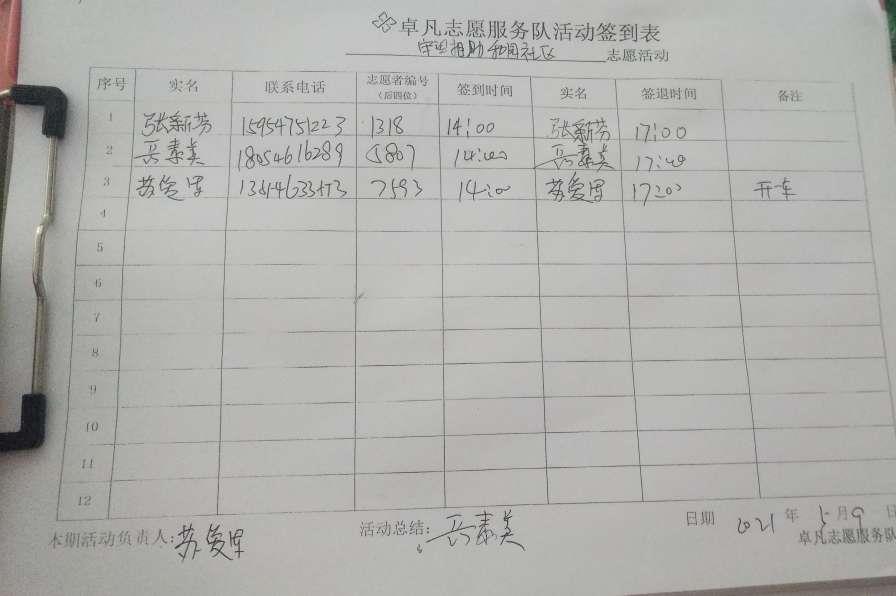 卓凡志愿服务队活动签到表
守望相助 和园社区 志愿活动
序号 实名 联系电话 志愿者编号（后四位） 签到时间 实名 签退时间 备注
1 张新芳 15954751223 1318 14:00 张新芳 17:00
2 兵素美 18054616289 5807 14:00 兵素美 17:00
3 苏爱军 7593 14:00 苏爱军 17:00 开车
4
5
6
7
8
9
10
11
12
本期活动负责人: 苏爱军 活动总结: 兵素美 日期 2021 年 5 月 9 日
卓凡志愿服务队